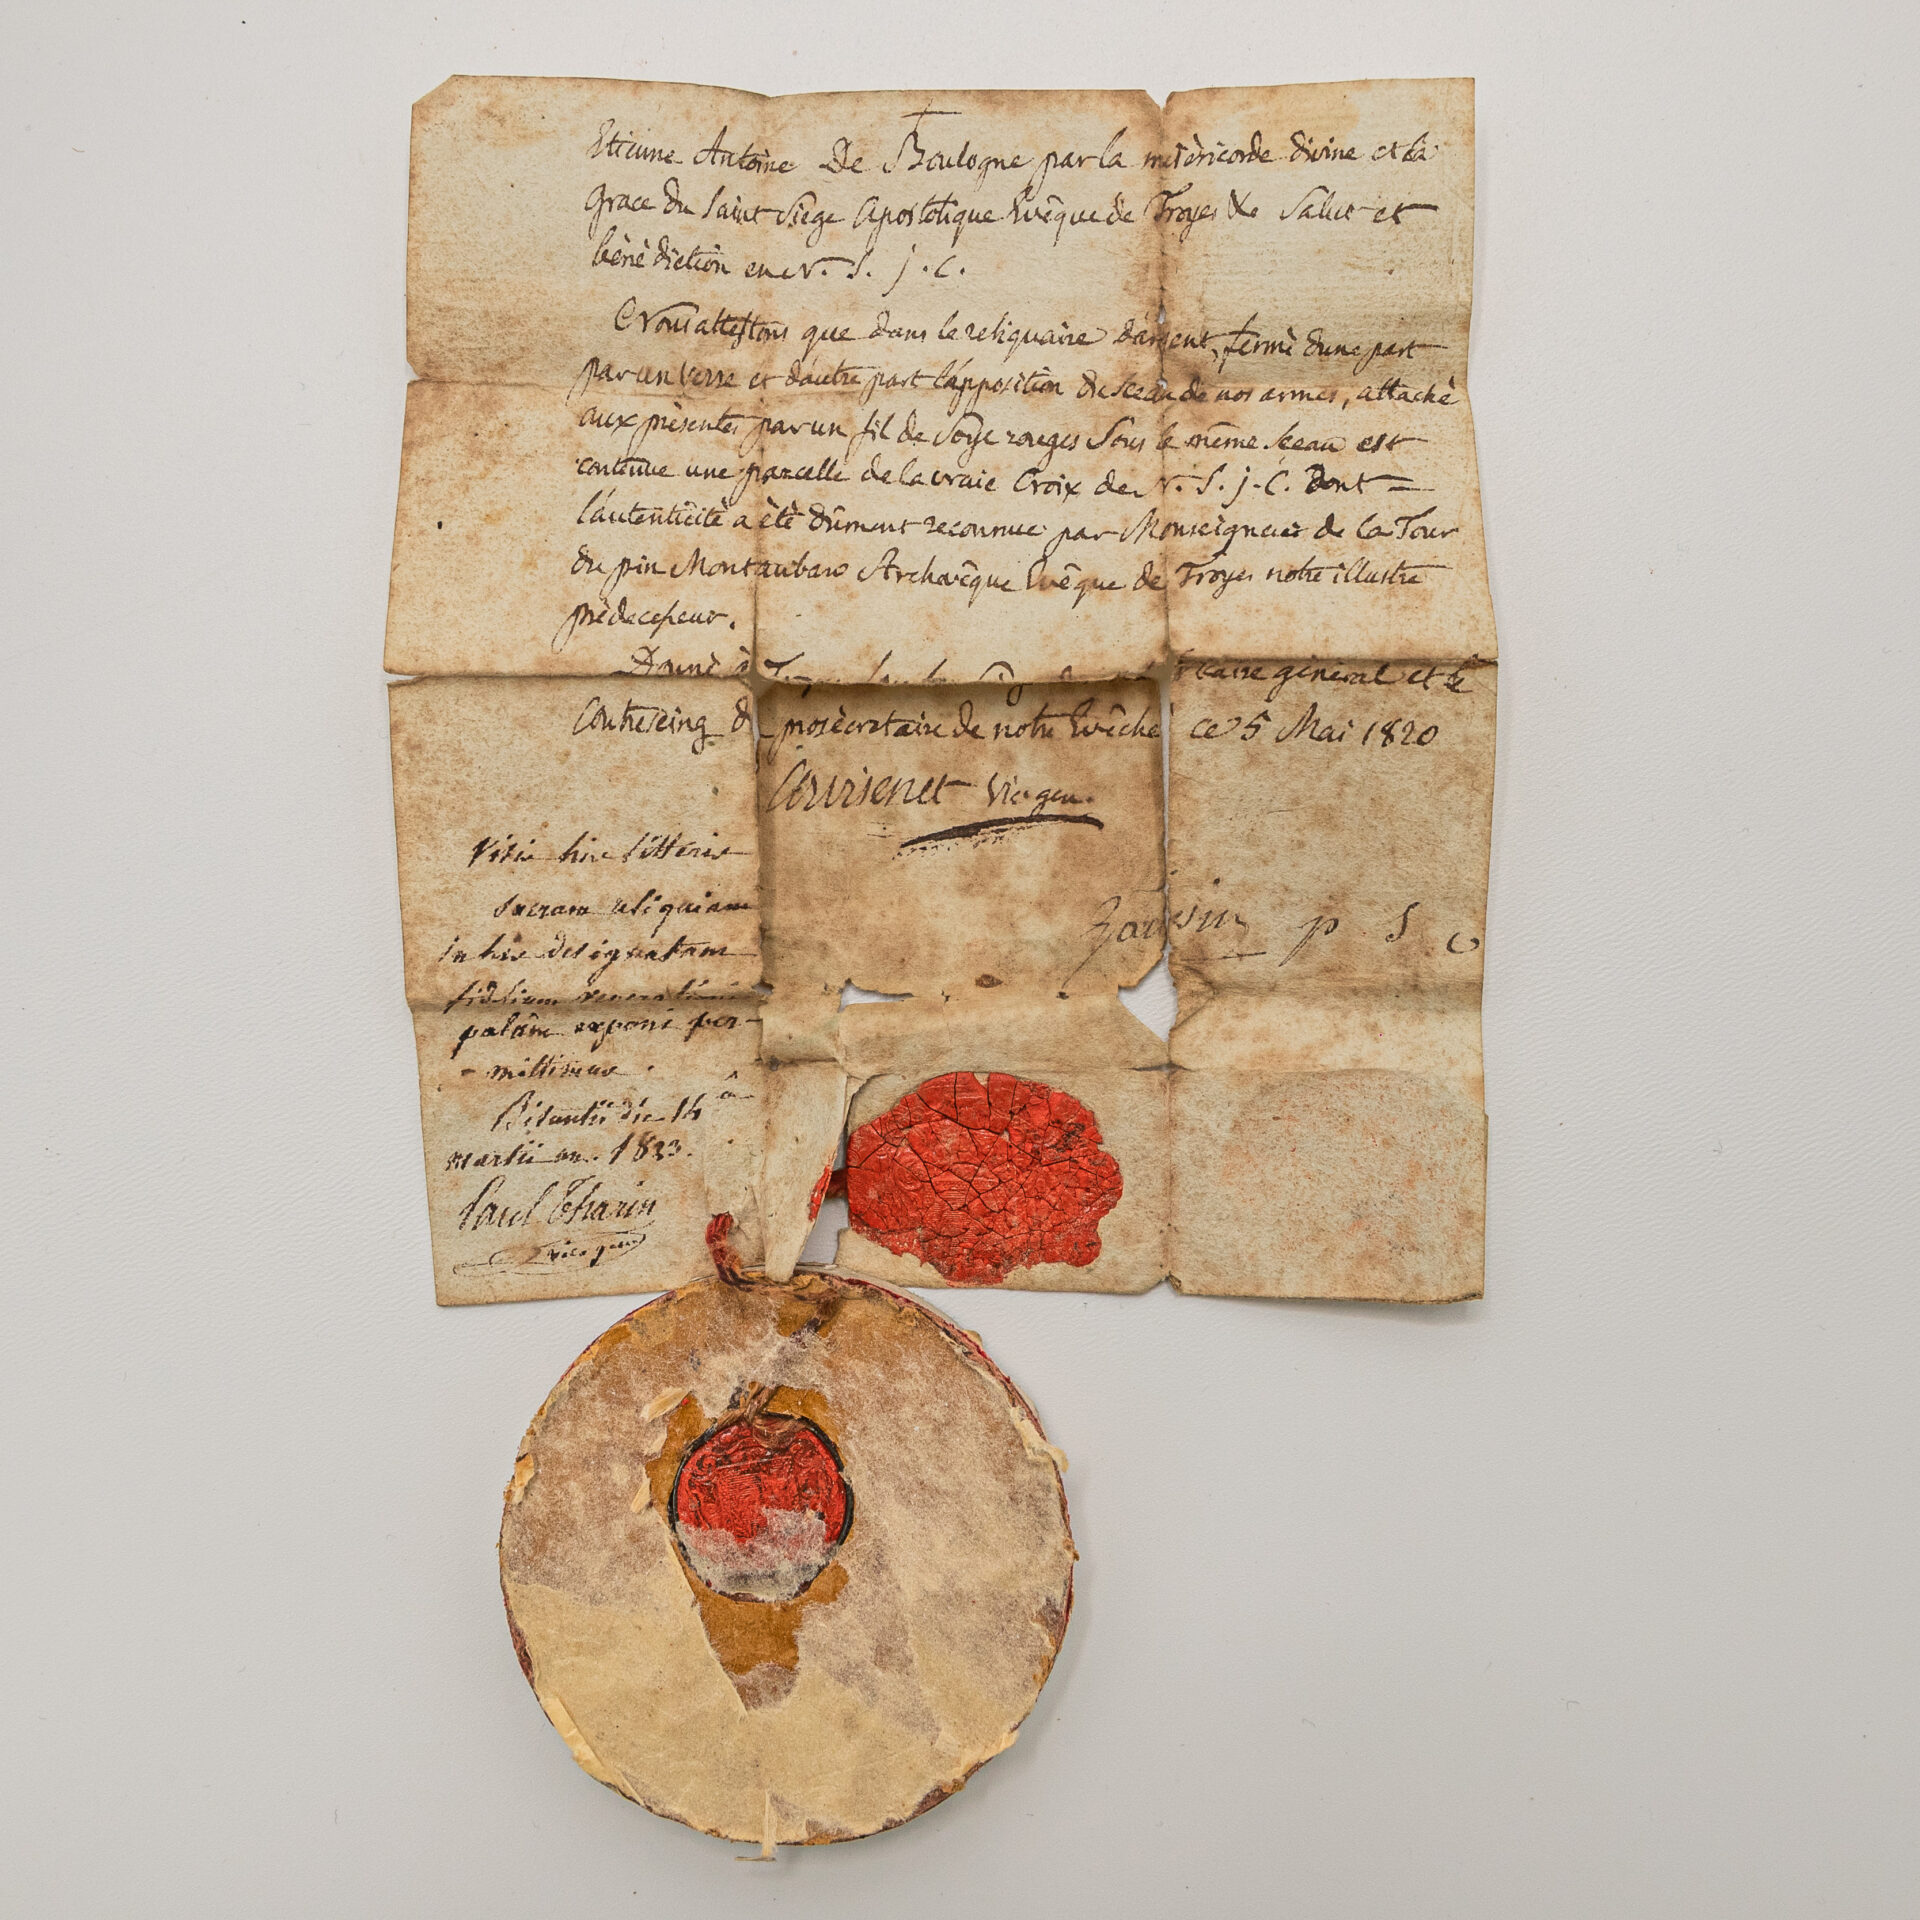 Etienne Antoine De Boulogne par la misèricorde divine et la
Grace du Saint Siège Apostolique Evêque de Troyes &c Salut et
bènèdiction en N. S. j. C.
Nous attestons que dans le reliquaire dargent, fermè dune part
par un verre et dautre part l'apposition du sceau de nos armes, attachè
aux prèsentes par un fil de Soye rouges Sous le même Sceau est
contenue une parcelle de la vraie Croix de N. S. j. C. Dont =
l'autenticitè a ètè dûment reconnue par Monseigneur de la Tour
du pin Montauban Archevêque Evêque de Troyes notre illustre
prèdecesseur.
Donnè à Troyes Sous le Sing general et le
Contreseing prosècretaire de notre Evêchè ce 5 Mai 1820
Vic. gen.
p S
Visis his litteris
sacram reliquiam
in his designatam
fidelium venerationi
palàm exponi per-
- mittimus .
Bisuntii die 14â
martii an. 1823.
Paul Tharin
vic. gen.